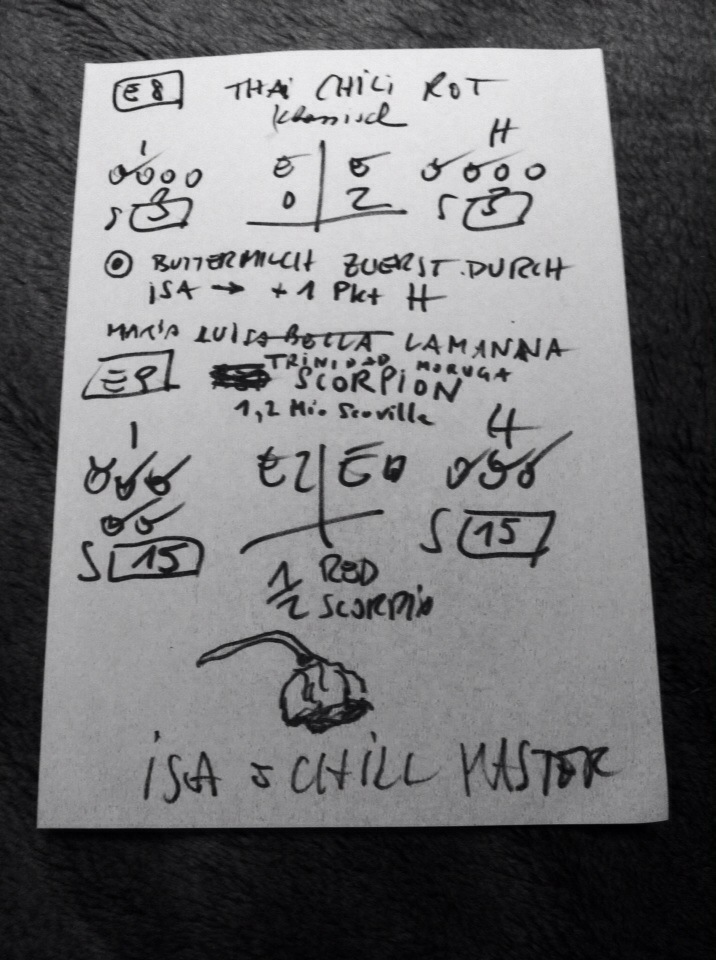 E8 THAI CHILI ROT
klassisch
I H
S 3 0 2 S 3
BUTTERMILCH ZUERST DURCH
iSA → + 1 Pkt H
MARIA LUISA BELLA LAMANNA
TRINIDAD MORUGA
E9 SCORPION
1,2 Mio Scoville
I H
E2 E0
S 15 S 15
1/2 RED
SCORPIO
iSA = CHILI MASTER